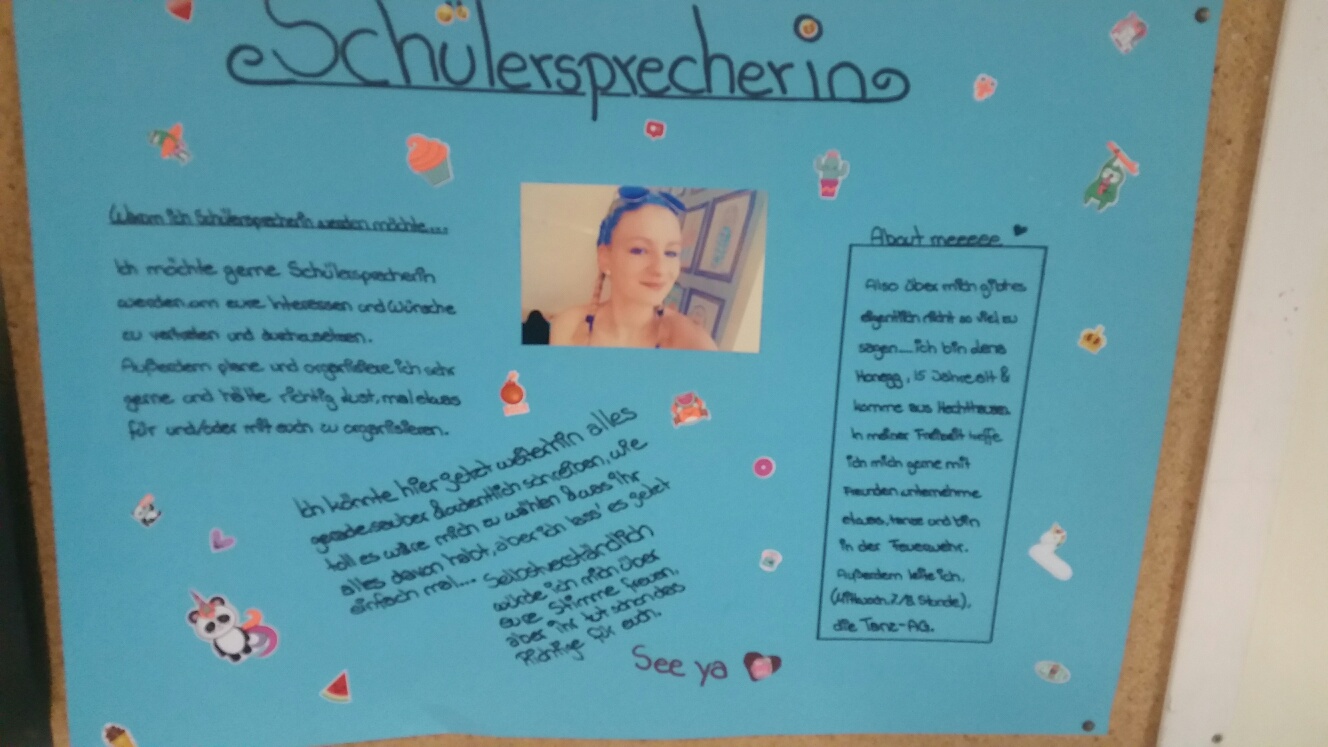 Schülersprecherin
Warum ich Schülersprecherin werden möchte...
Ich möchte gerne Schülersprecherin
werden um eure Interessen und Wünsche
zu vertreten und durchzusetzen.
Außerdem plane und organisiere ich sehr
gerne und hätte richtig Lust, mal etwas
für und/oder mit euch zu organisieren.
Ich könnte hier jetzt weiterhin alles
gerade, sauber & ordentlich schreiben, wie
toll es wäre mich zu wählen & was ihr
alles davon habt, aber ich lass' es jetzt
einfach mal... Selbstverständlich
würde ich mich über
eure Stimme freuen,
aber ihr tut schon das
Richtige für euch.
See ya
About meeeee
Also über mich gibt es
eigentlich nicht so viel zu
sagen... ich bin
Honegg, 15 Jahre alt &
komme aus Hechthausen.
In meiner Freizeit treffe
ich mich gerne mit
Freunden unternehme
etwas, tanze und bin
in der Feuerwehr.
Außerdem leite ich,
(Mittwoch 7/8 Stunde),
die Tanz-AG.